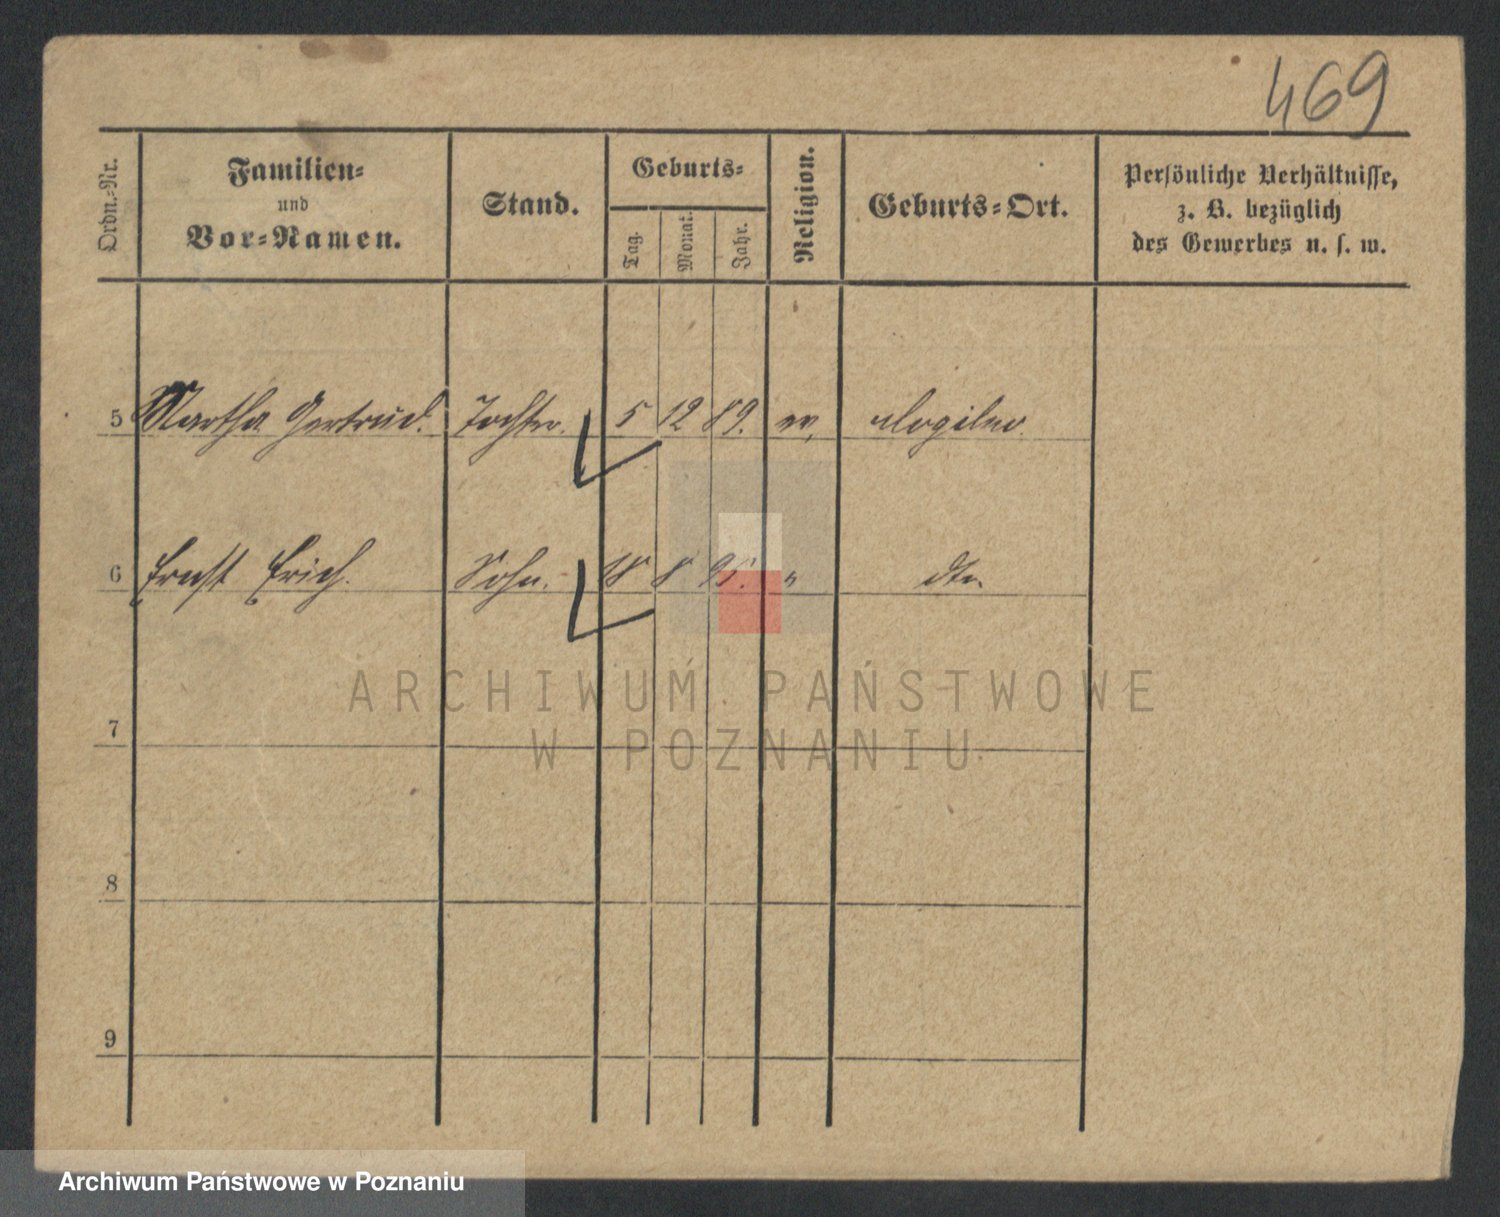 469
Ordn.-Nr. Familien- und Vor-Namen. Stand. Geburts- Tag. Monat. Jahr. Religion. Geburts-Ort. Persönliche Verhältnisse, z. B. bezüglich des Gewerbes u. s. w.
5 Martha Gertrud. Tochter. 5 12 89. ev. Mogilno.
6 Ernst Erich. Sohn. 18 8 95. " dto.
7
8
9
ARCHIWUM PAŃSTWOWE
W POZNANIU
Archiwum Państwowe w Poznaniu